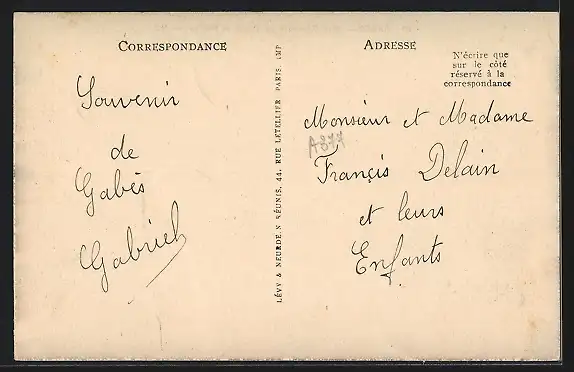 CORRESPONDANCE
Souvenir
de
Gabès
Gabriel
LÉVY & NEURDEIN RÉUNIS, 44, RUE LETELLIER PARIS. IMP
ADRESSE
N'écrire que
sur le côté
réservé à la
correspondance
Monsieur et Madame
A377
Françis Delain
et leurs
Enfants